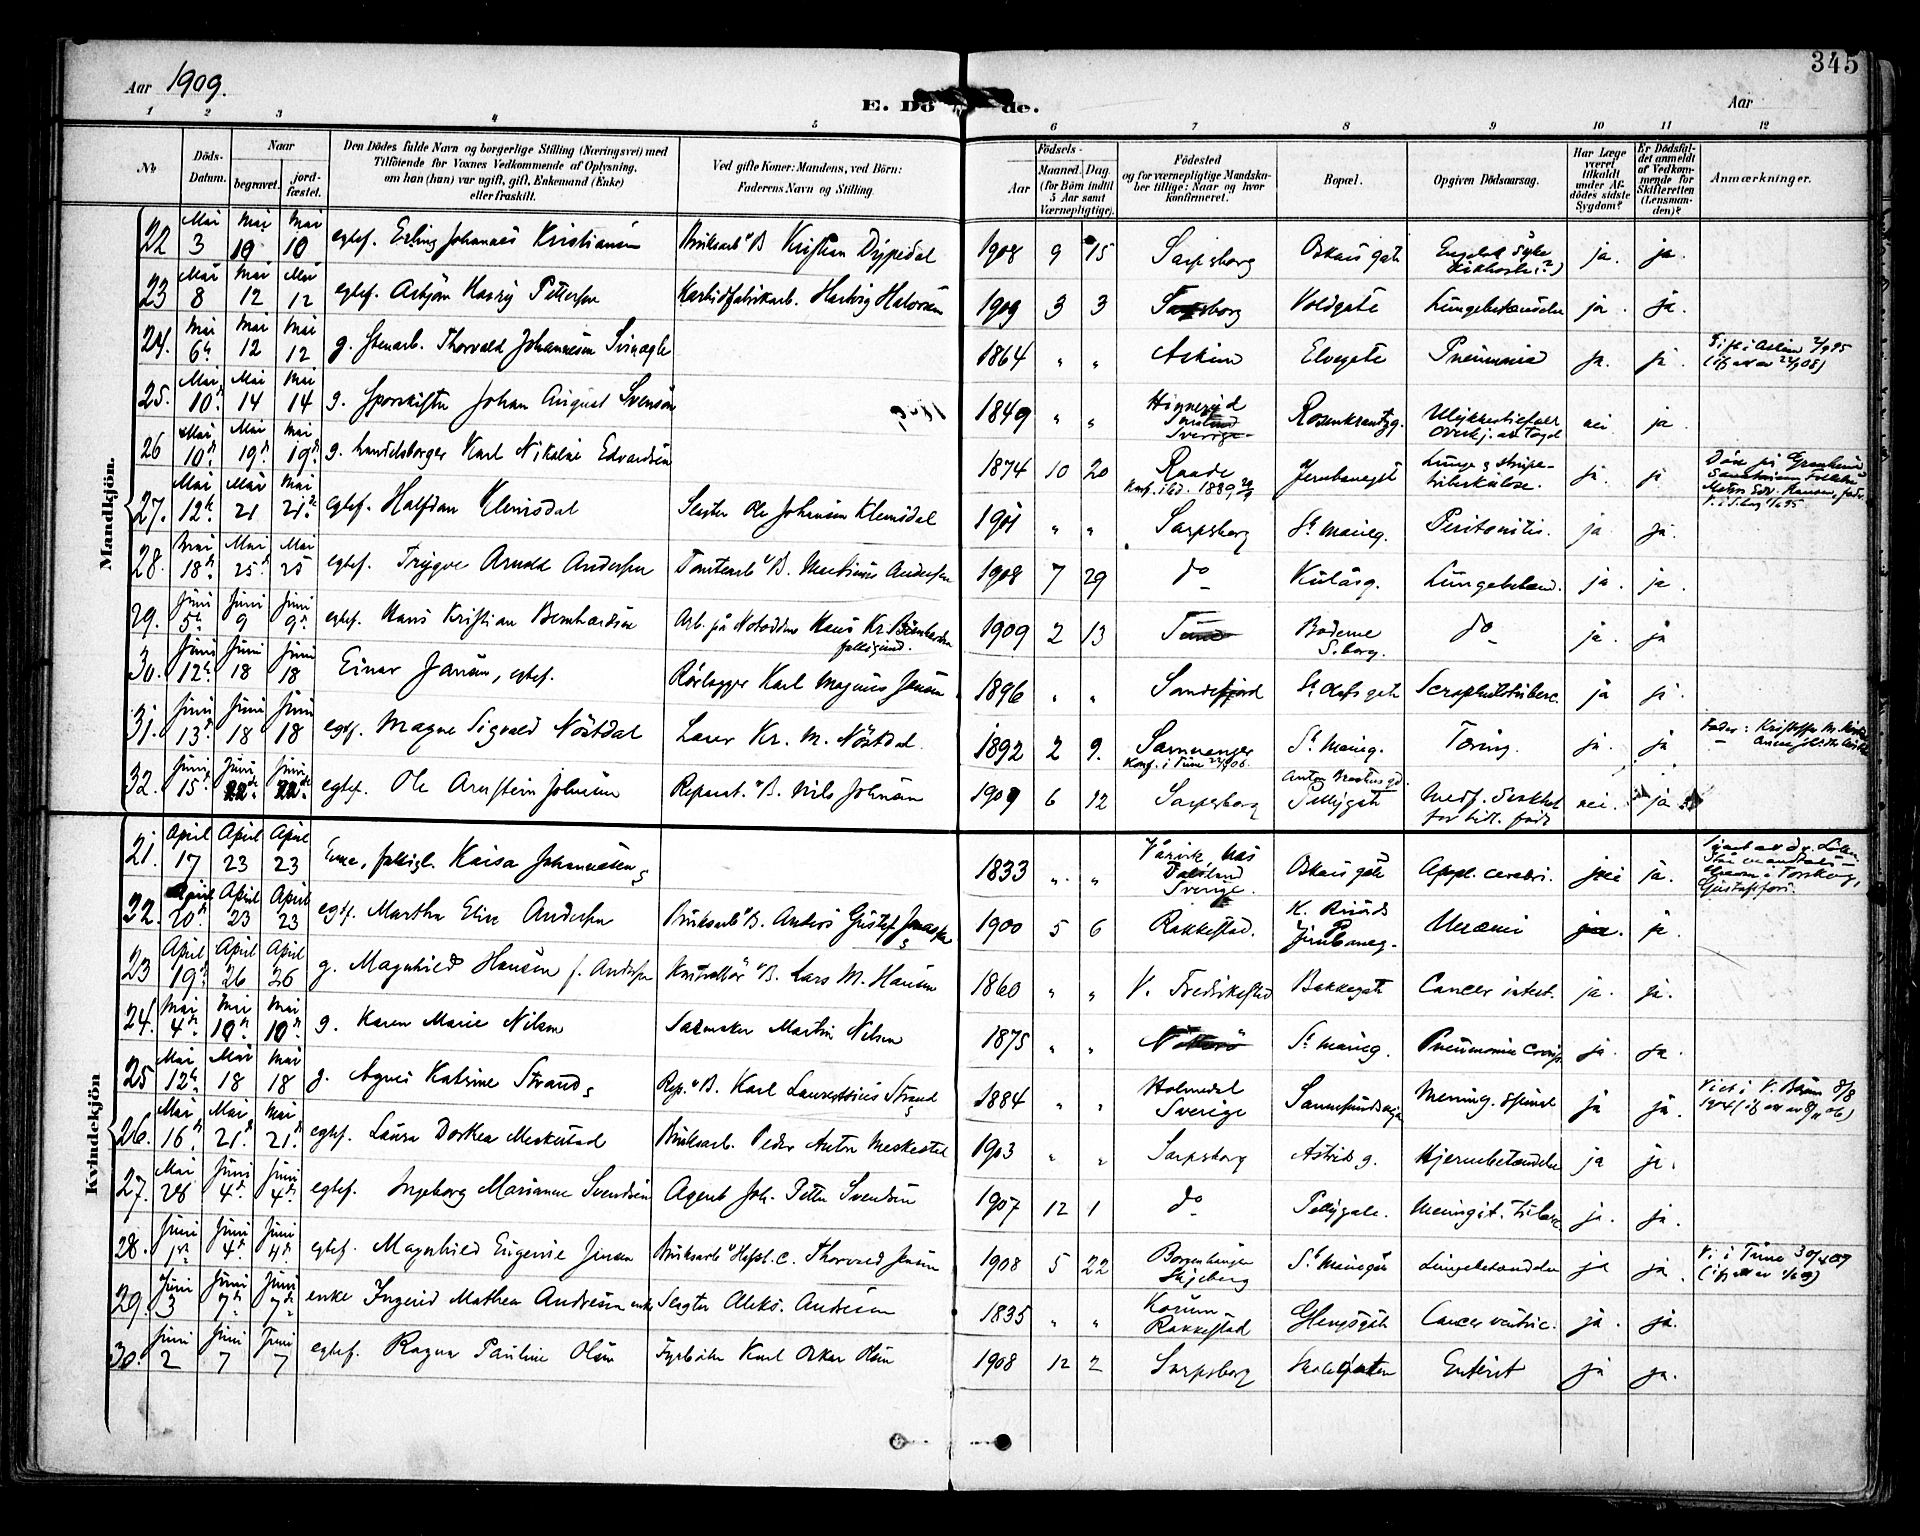 345
Aar 1909.
E. Dö de.
Aar
1 2 3 4 5 6 7 8 9 10 11 12
No
Döds-Datum.
Naar begravet. jordfæstet.
Den Dödes fulde Navn og borgerlige Stilling (Næringsvei) med Tilföiende for Voxnes Vedkommende af Oplysning, om han (hun) var ugift, gift, Enkemand (Enke) eller fraskilt.
Ved gifte Koner: Mandens, ved Börn: Faderens Navn og Stilling.
Födsels-
Aar Maaned. Dag
(for Börn indtil 5 Aar samt Værnepligtige).
Födested og for værnepligtige Mandskaber tillige: Naar og hvor konfirmeret.
Bopæl.
Opgiven Dödsaarsag.
Har Læge været tilkaldt under Afdödes sidste Sygdom?
Er Dödsfaldet anmeldt af Vedkommende for Skifteretten (Lensmanden)?
Anmærkninger.
Mandkjön.
22 Mai 3 Mai 10 Mai 10 egtef. Erling Johannes Kristiansen Bruksarb. B Kristian Dypedal 1908 9 15 Sarpsborg Oskars gate ja. ja.
23 Mai 8 Mai 12 Mai 12 egtef. Asbjörn Harry Pettersen Karbidfabrikarb. Hartvig Halvorsen 1909 3 3 Sarpsborg Voldgate Lungebetændelse ja. ja.
24. Mai 6 Mai 12 Mai 12 g. Stenarb. Thorvald Johannesen Svinagle 1864 " " Askim Elvegate Pneumonia ja. ja
25. Mai 10 Mai 14 Mai 14 g. Sporskifter Johan August Svenson 1849 " " Sverige Rosenkrantzg. Ulykkestilfæl. Overkj. av Tog nei ja
26 Mai 10 Mai 19 Mai 19 g. Handelsborger Karl Nikolai Edvardsen 1874 10 20 Raade Konf. ibd. 1889 Jernbanegt Lunge & strupe-tuberkulose. ja. ja
27. Mai 12 Mai 21 Mai 21 egtef. Halfdan Klemsdal Slagter Ole Johansen Klemsdal 1901 " " Sarpsborg St. Marieg. Peritonitis. ja ja.
28. Mai 18 Mai 25 Mai 25 egtef. Trygve Arnold Andersen Tomtearb B. Martinius Andersen 1908 7 29 do Kulåsg. Lungebetænd. ja. ja
29. Juni 5 Juni 9 Juni 9 egtef. Hans Kristian Bernhardsen Arb. på Notodden Hans Kr. Bernhardsen 1909 2 13 Tune Boderne S.borg. do ja. ja
30. Juni 12 Juni 18 Juni 18 Einar Jansen, egtef. Rörlegger Karl Magnus Jensen 1896 " " Sandefjord St. Olafs gate Scrophulotuberc. ja ja.
31. Juni 13 Juni 18 Juni 18 egtf. Magne Sigvald Nöstdal Lærer Kr. M. Nöstdal. 1892 2 9. Samnanger Konf. i Tune St. Marieg. Tæring. ja. ja
32. Juni 15 Juni 22 Juni 22 egtef. Ole Arnstein Johnsen Reparat. B. Nils Johnsen 1909 6 12 Sarpsborg Pellygate Medf. Svakhet for tidl. född nei. ja
Kvindekjön
21. April 17 April 23 April 23 Enke, Kaisa Johannesen 1833 " " Dalsland Sverige. Oskars gate Appl. cerebri. nei ja.
22. April 20 April 23 April 23 egtf. Martha Elise Andersen Bruksarb B. Anders Gustaf 1900 5 6 Rakkestad. Jernbaneg. Uræmi ja. ja.
23 April 19 April 26 April 26 g. Magnhild Hansen f. Andersen Kontrollör B. Lars M. Hansen 1860 " " V. Fredrikstad Bakkegate Cancer intest. ja. ja.
24. Mai 4 Mai 10 Mai 10 g. Karen Marie Nilsen Salmaker Martin Nilsen 1875 " " Nötterö St. Marieg. Pneumonia Croup. ja. ja.
25 Mai 12 Mai 18 Mai 18 g. Agnes Katrine Strand Rep. B. Karl Laurentius Strand 1884 " " Holmedal Sverige Mening. spinal ja ja.
26. Mai 16 Mai 21 Mai 21 egtef. Laura Dorthea Meskestad Bruksarb. Peder Anton Meskestad 1903 " " Sarpsborg Astrids g. Hjernebetændelse ja ja.
27. Mai 28 Juni 4 Juni 4 egtef. Ingeborg Marianne Svendsen Agent Joh. Petter Svendsen 1907 12 1 do Pellygate. Meningit. tuberc ja. ja.
28. Juni 1 Juni 4 Juni 4 egtef. Magnhild Eugenie Jensen Bruksarb Hafsl. C. Thorvald Jensen 1908 5 22 Borgenhaugen Skjeberg St. Mariegate Lungebetændelse ja ja. V. i Tune 30/4 07
29. Juni 3 Juni 7 Juni 7 enke Ingerid Mathea Andresen enke Slagter Aleks. Andresen 1835 " " Rakkestad Glengsgate Cancer ventric. ja. ja.
30. Juni 2 Juni 7 Juni 7 egtef. Ragna Pauline Olsen Fyrböter Karl Oskar Olsen 1908 12 2 Sarpsborg Skolegaten Enterit ja ja.